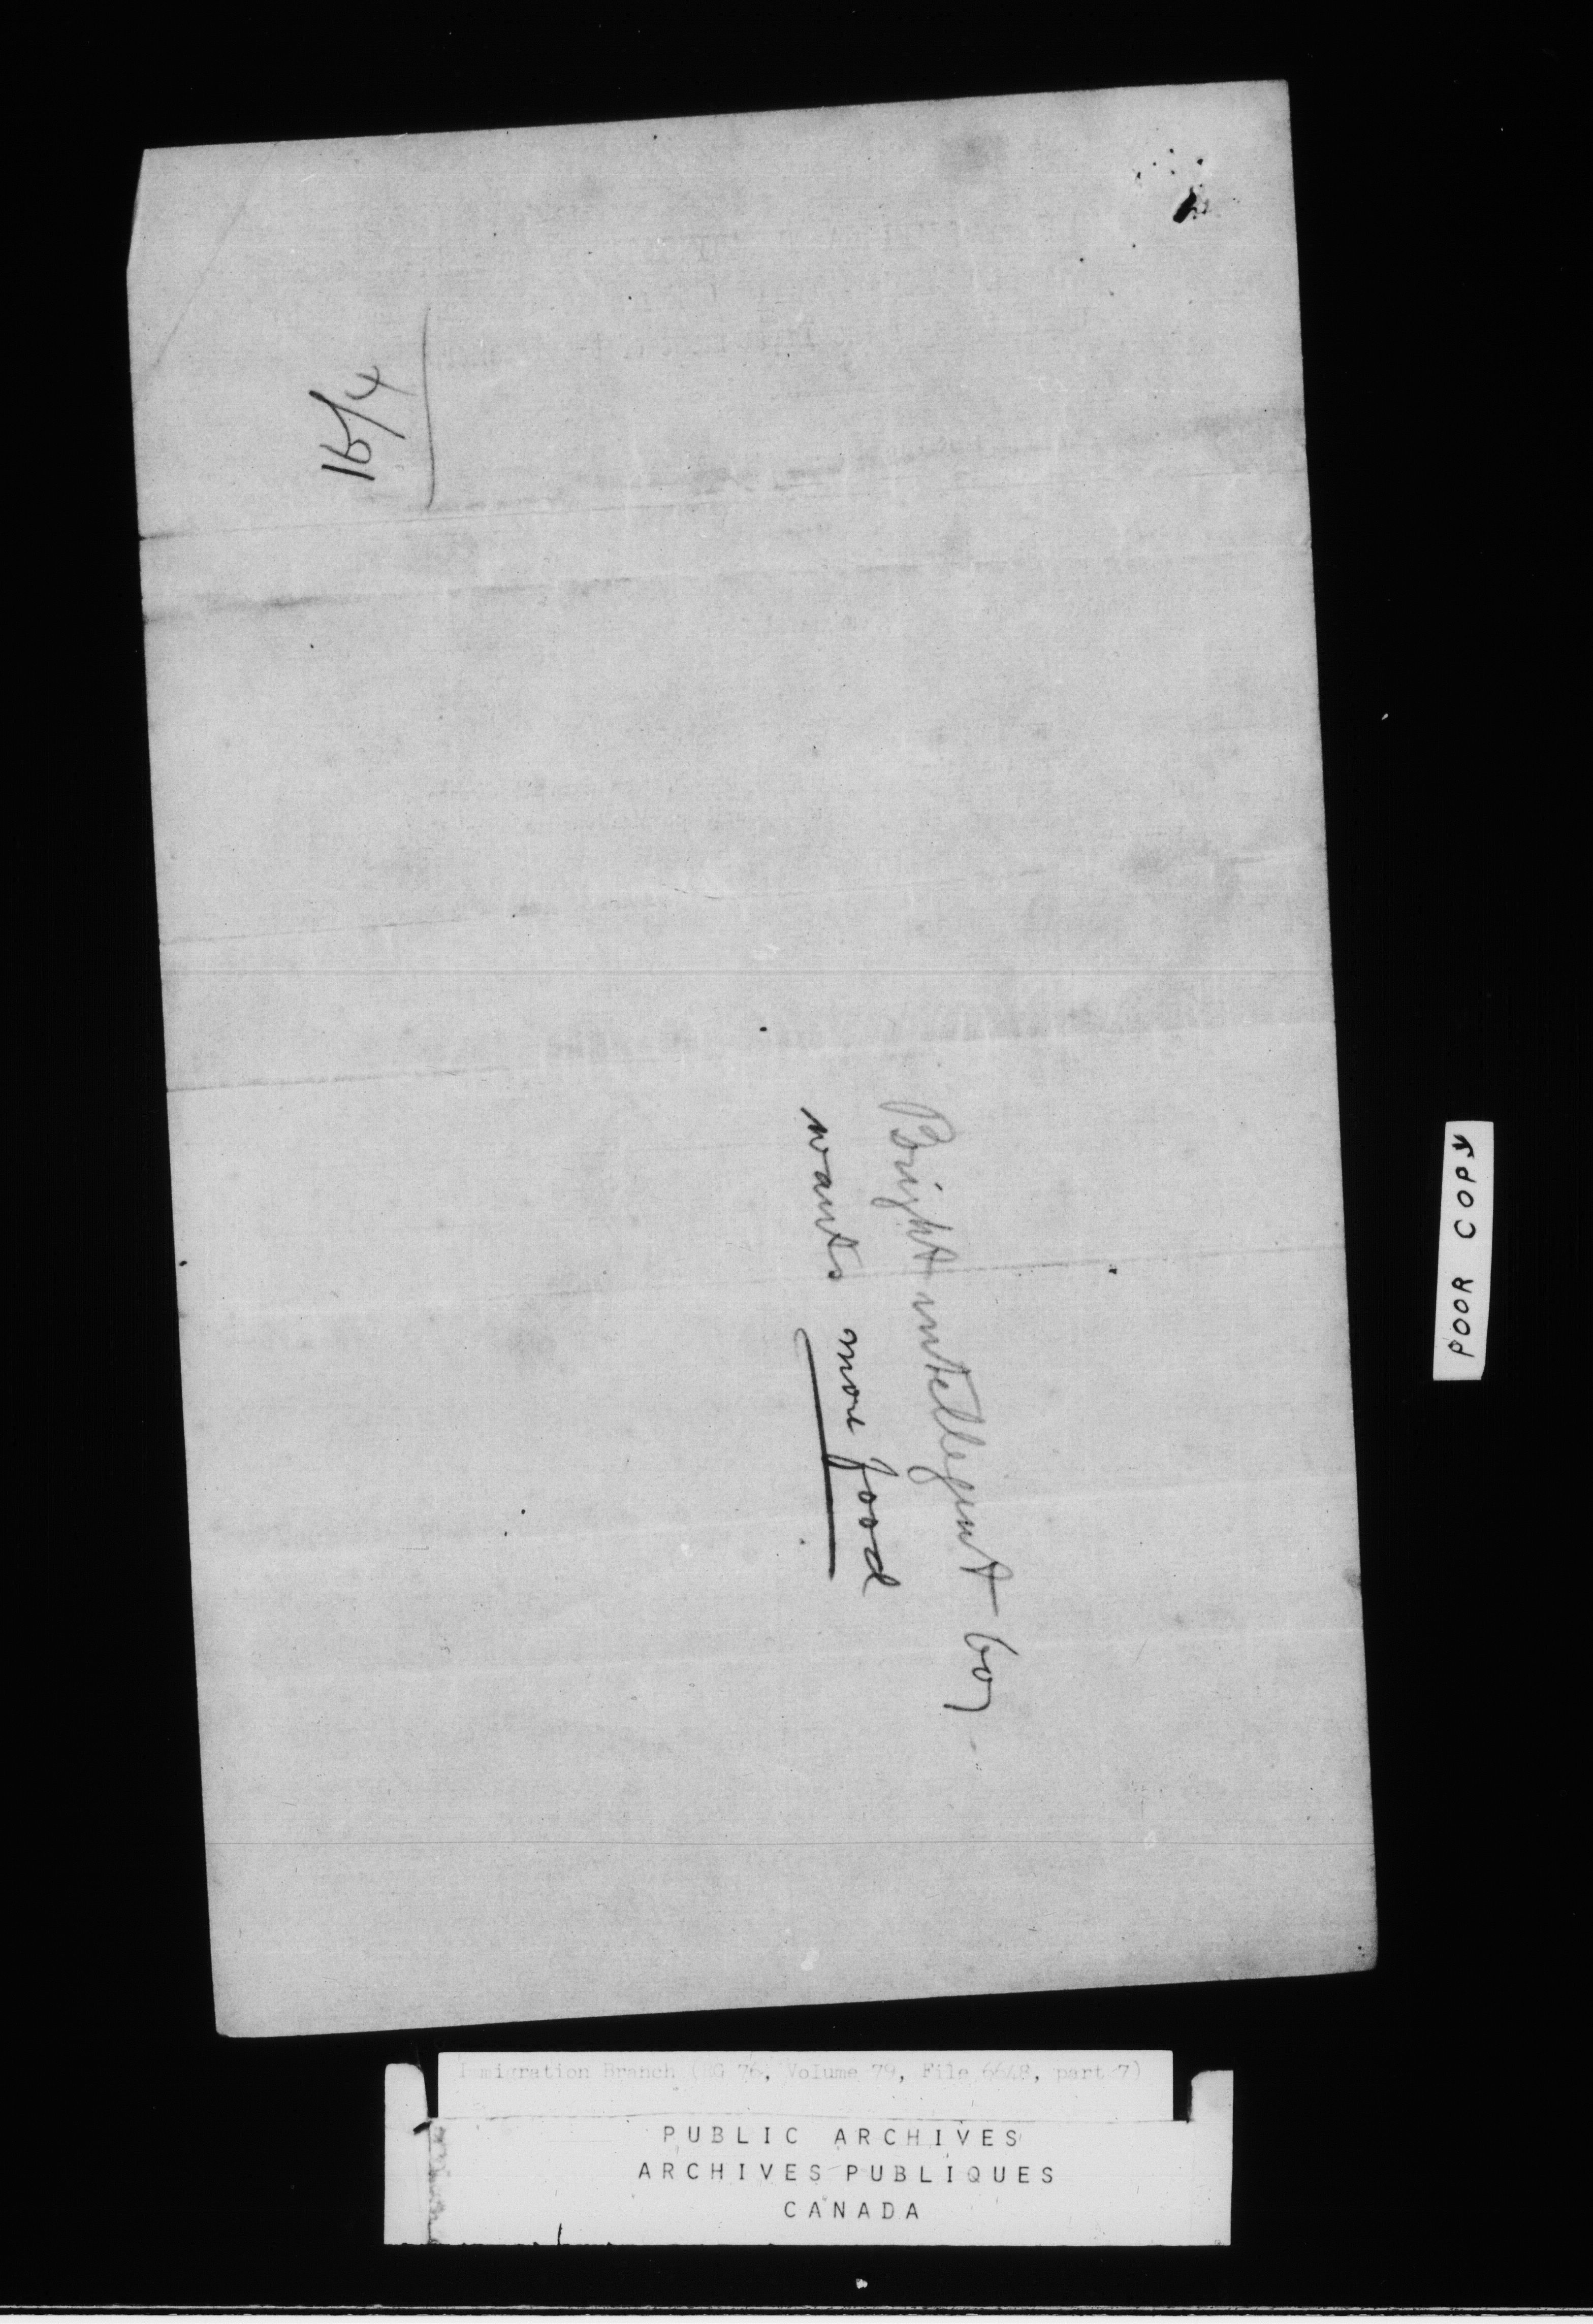 15/4
Bright intellegent boy
wants more food
POOR COPY
Immigration Branch (RG 76, Volume 79, File 6648, part 7)
PUBLIC ARCHIVES
ARCHIVES PUBLIQUES
CANADA